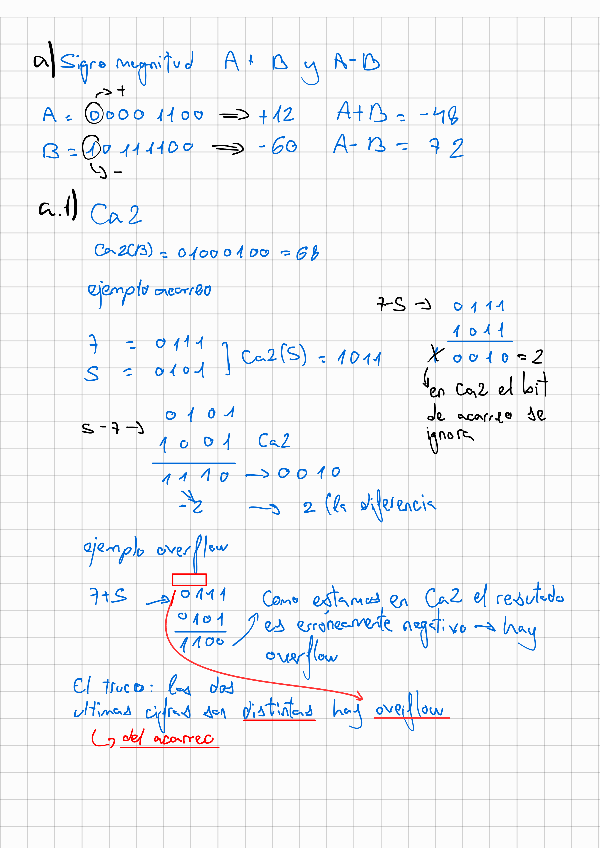 a) Signo magnitud A + B y A - B
→ +
A = 00001100 ⇒ +12 A+B = -48
B = 10111100 ⇒ -60 A - B = 72
↳ -
a.1) Ca2
Ca2(B) = 01000100 = 68
ejemplo acarreo
7 = 0111
5 = 0101 ] Ca2(5) = 1011
7-5 → 0111
1011
X 0010 = 2
↳ en Ca2 el bit
de acarreo se
ignora
5 - 7 → 0101
1001 Ca2
1110 → 0010
-2 → 2 (la diferencia
ejemplo overflow
7+5 → 0111
0101
1100
Como estamos en Ca2 el resutado
es erróneamente negativo → hay
overflow
El truco: las dos
ultimas cifras son distintas hay overflow
↳ del acarreo